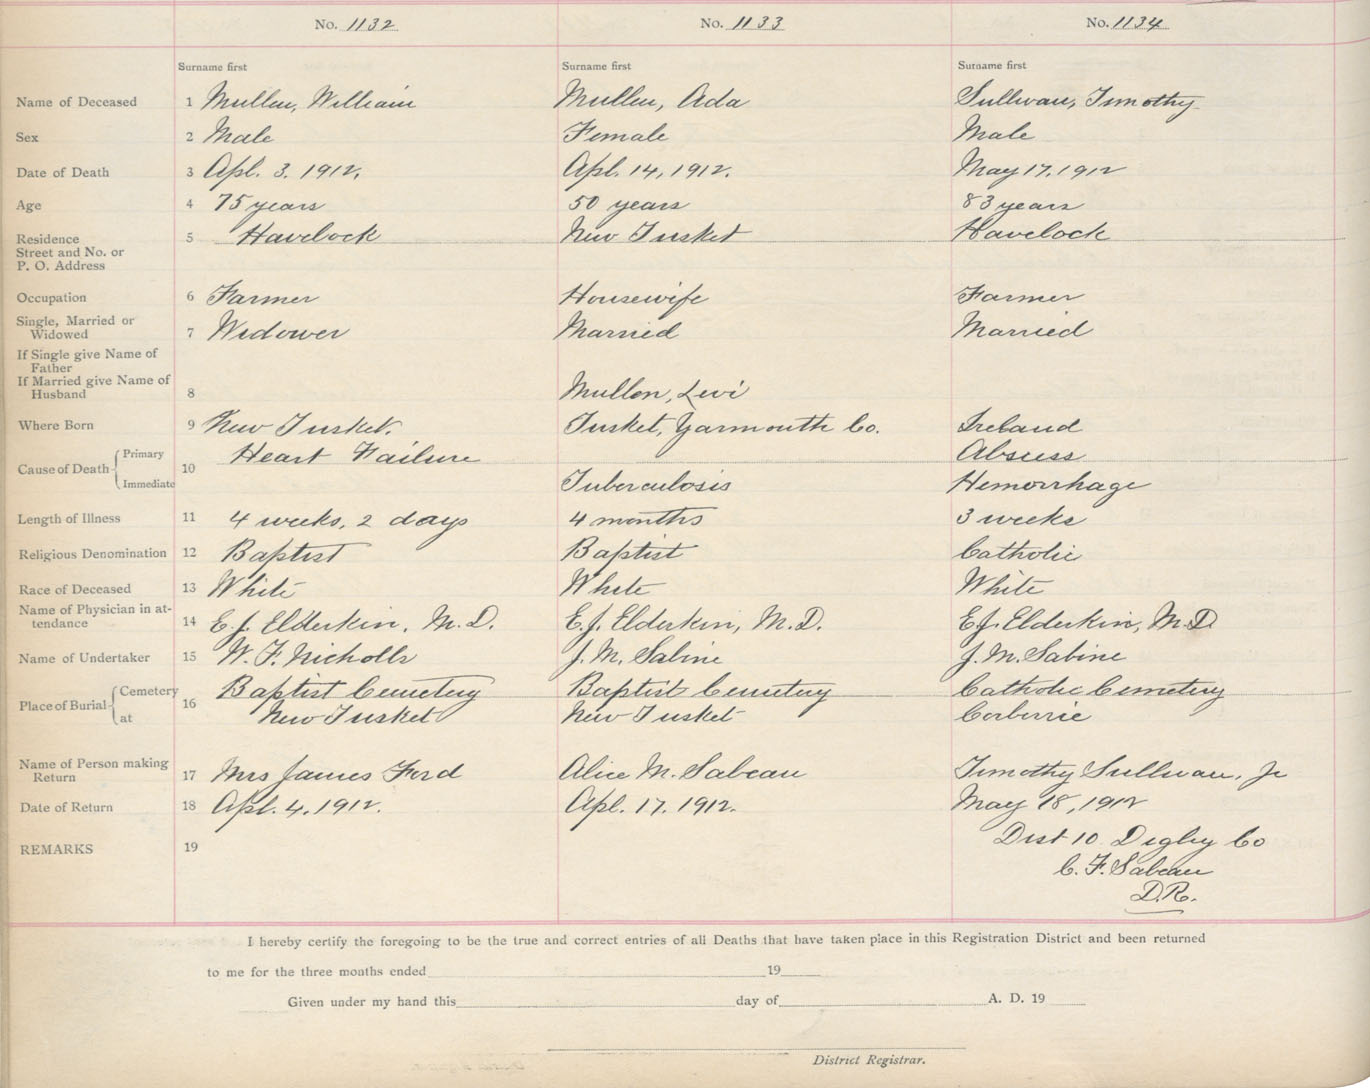 No. 1132 No. 1133 No. 1134
Surname first Surname first Surname first
Name of Deceased 1 Mullen, William Mullen, Ada Sullivan, Timothy
Sex 2 Male Female Male
Date of Death 3 Apl. 3. 1912. Apl. 14, 1912. May 17. 1912
Age 4 75 years 50 years 83 years
Residence
Street and No. or
P. O. Address 5 Havelock New Tusket Havelock
Occupation 6 Farmer Housewife Farmer
Single, Married or
Widowed 7 Widower Married Married
If Single give Name of
Father
If Married give Name of
Husband 8 Mullen, Levi
Where Born 9 New Tusket. Tusket, Yarmouth Co. Ireland
Cause of Death Primary 10 Heart Failure Absess
Immediate Tuberculosis Hemorrhage
Length of Illness 11 4 weeks, 2 days 4 months 3 weeks
Religious Denomination 12 Baptist Baptist Catholic
Race of Deceased 13 White White White
Name of Physician in at-
tendance 14 E. J. Elderkin, M.D. E. J. Elderkin, M.D. E. J. Elderkin, M.D
Name of Undertaker 15 W. F. Nicholls J. M. Sabine J. M. Sabine
Place of Burial Cemetery 16 Baptist Cemetery Baptist Cemetery Catholic Cemetery
at New Tusket New Tusket Corberrie
Name of Person making
Return 17 Mrs James Ford Alice M. Sabean Timothy Sullivan, Jr
Date of Return 18 Apl. 4. 1912. Apl. 17. 1912. May 18, 1912
REMARKS 19 Dist 10 Digby Co
C. F. Sabean
D.R.
I hereby certify the foregoing to be the true and correct entries of all Deaths that have taken place in this Registration District and been returned
to me for the three months ended 19
Given under my hand this day of A. D. 19
District Registrar.